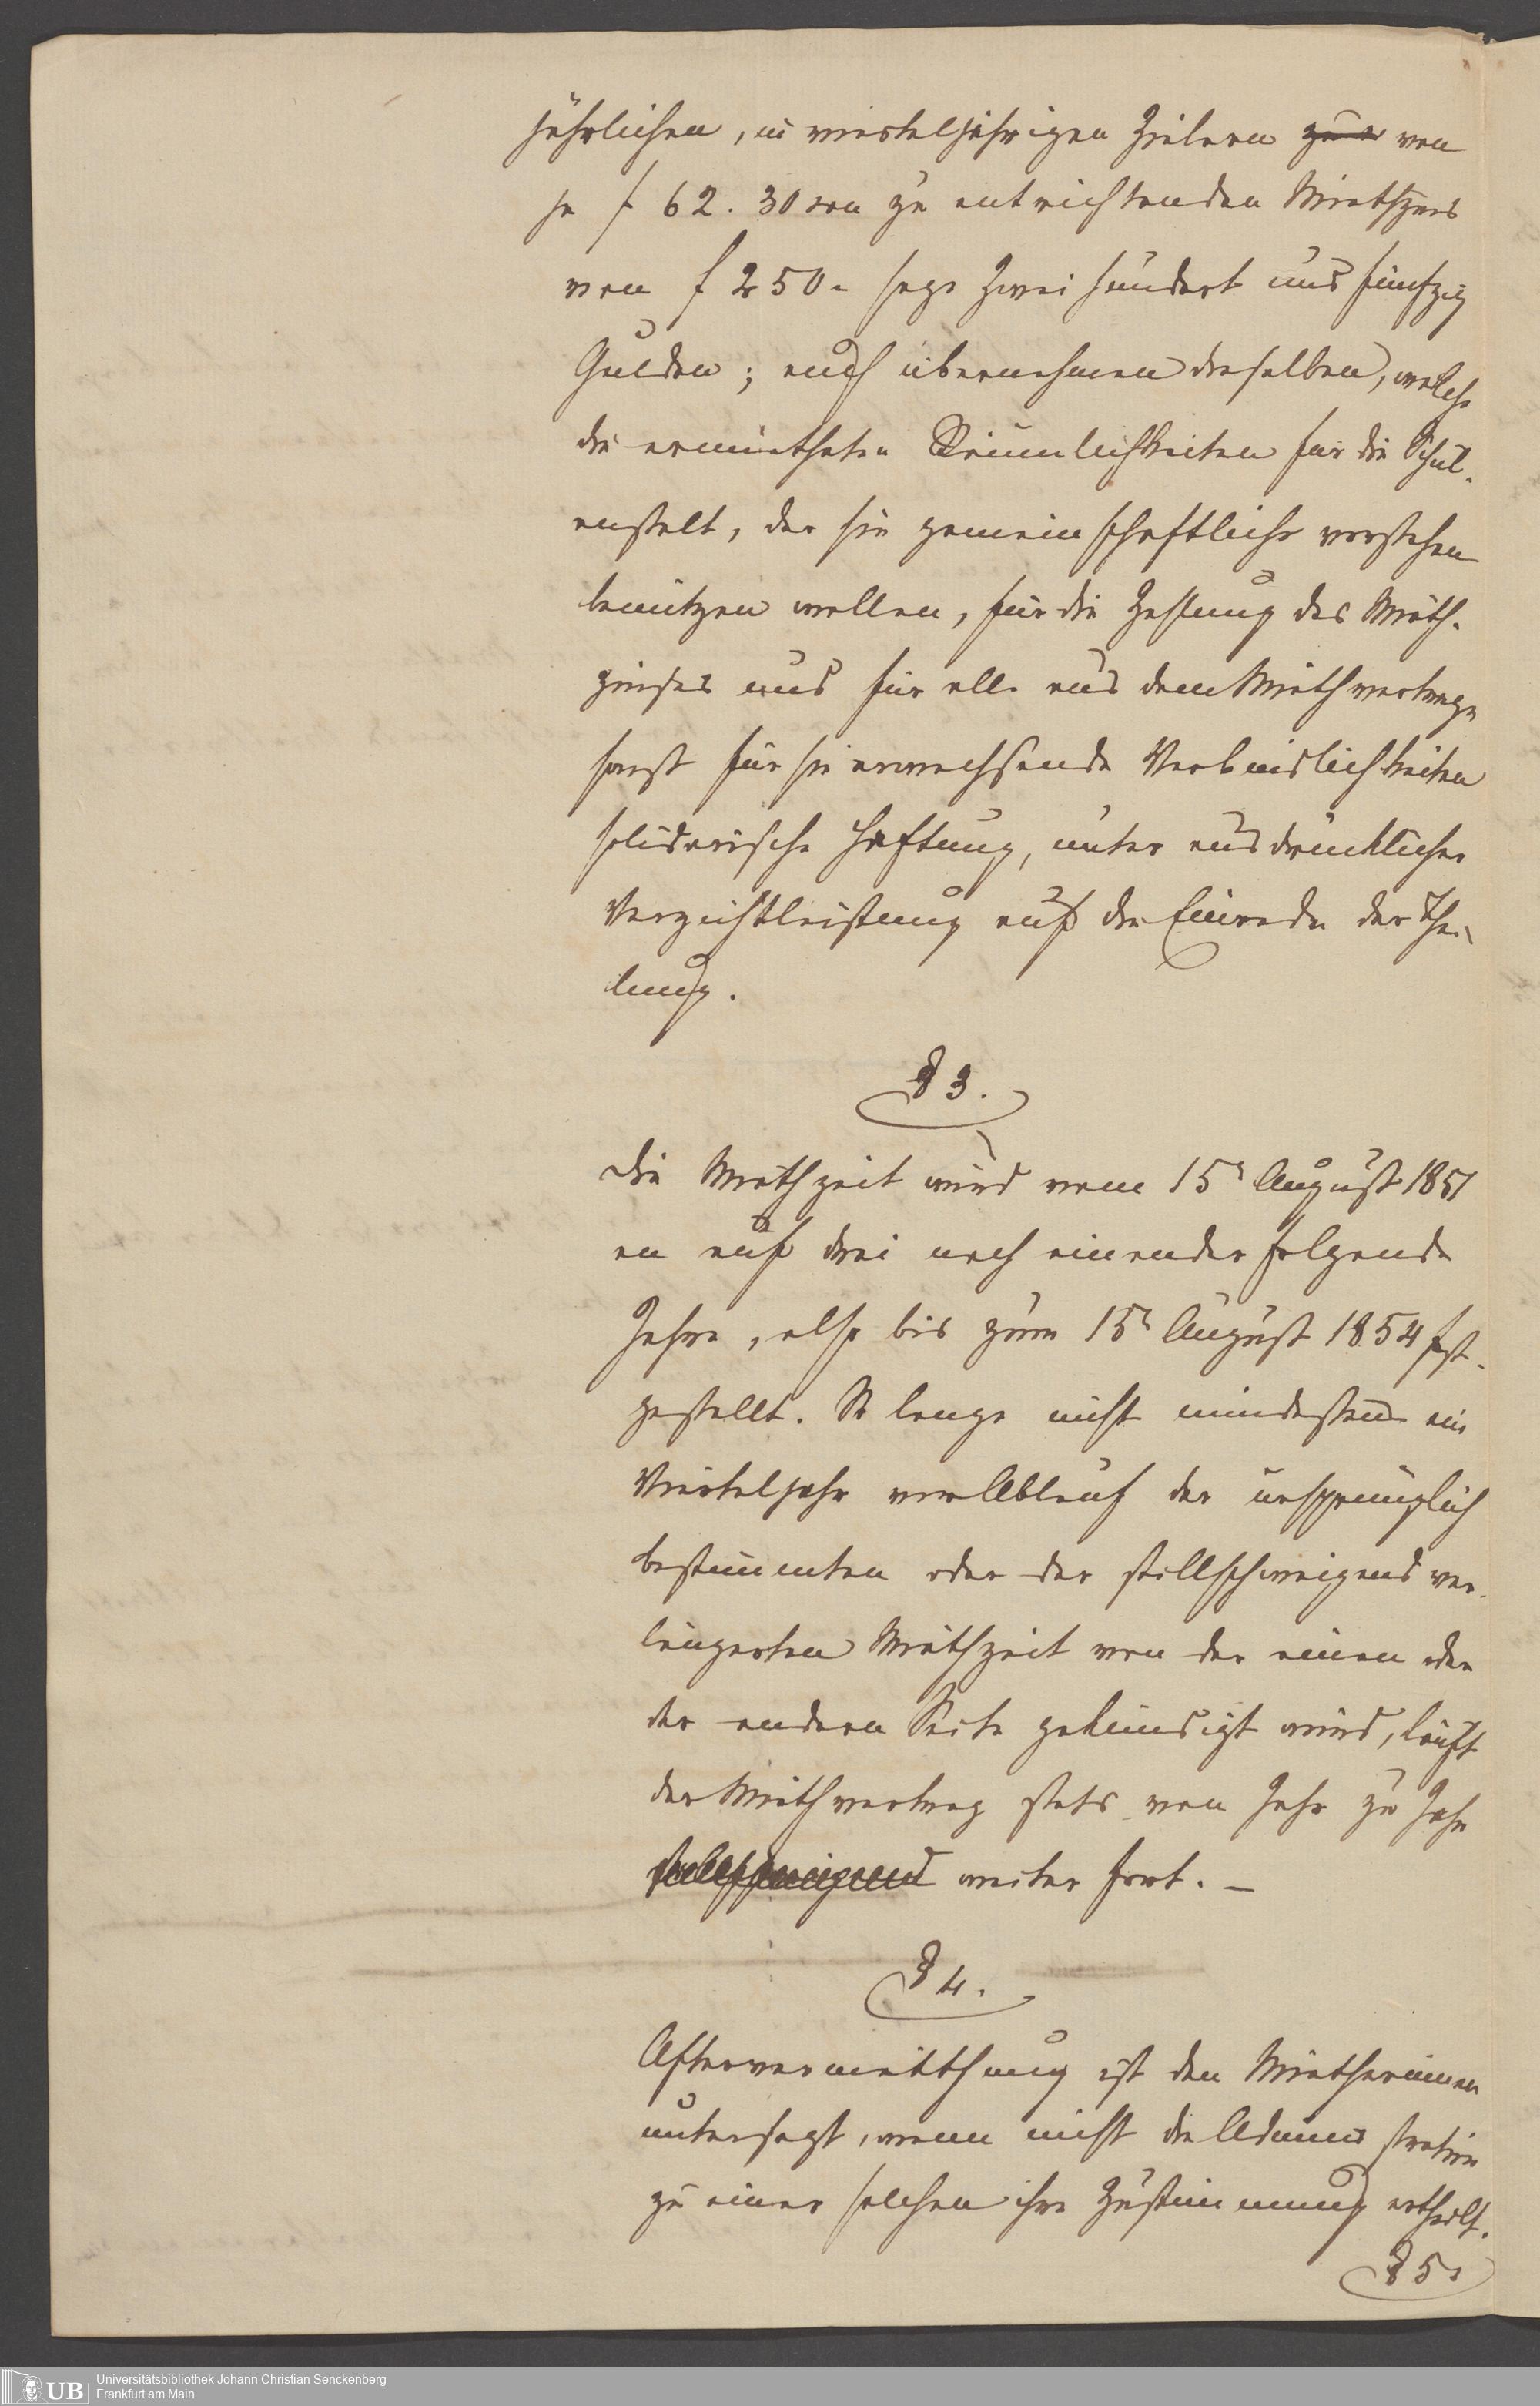 jährlichen, in vierteljährigen Zielern zu von
je f 62. 30 xrn zu entrichtenden Miethzins
von f 250.- sage Zwei hundert und fünfzig
Gulden; auch übernehmen dieselben, welche
die ermietheten Räumlichkeiten für die Schul-
anstalt, der sie gemeinschaftlich vorstehen
benützen wollen, für die Zahlung des Mieth-
zinses und für alle aus dem Miethvertrage
sonst für sie erwachsende Verbindlichkeiten
solidarische Haftung, unter ausdrücklicher
Verzichtleistung auf die Einrede der Thei-
lung.
§ 3.
Die Miethzeit wird vom 15n August 1851
an auf drei nach einander folgende
Jahre, also bis zum 15n August 1854 fest-
gestellt. So lange nicht mindestens ein
Vierteljahr vor Ablauf der ursprünglich
bestimmten oder der stillschweigend ver-
längerten Miethzeit von der einen oder
der andern Seite gekündigt wird, läuft
der Miethvertrag stets von Jahr zu Jahr
stillschweigend weiter fort. —
§ 4.
Aftervermiethung ist den Mietherinnen
untersagt, wenn nicht die Administration
zu einer solchen ihre Zustimmung ertheilt.
§ 5.
UB
Universitätsbibliothek Johann Christian Senckenberg
Frankfurt am Main